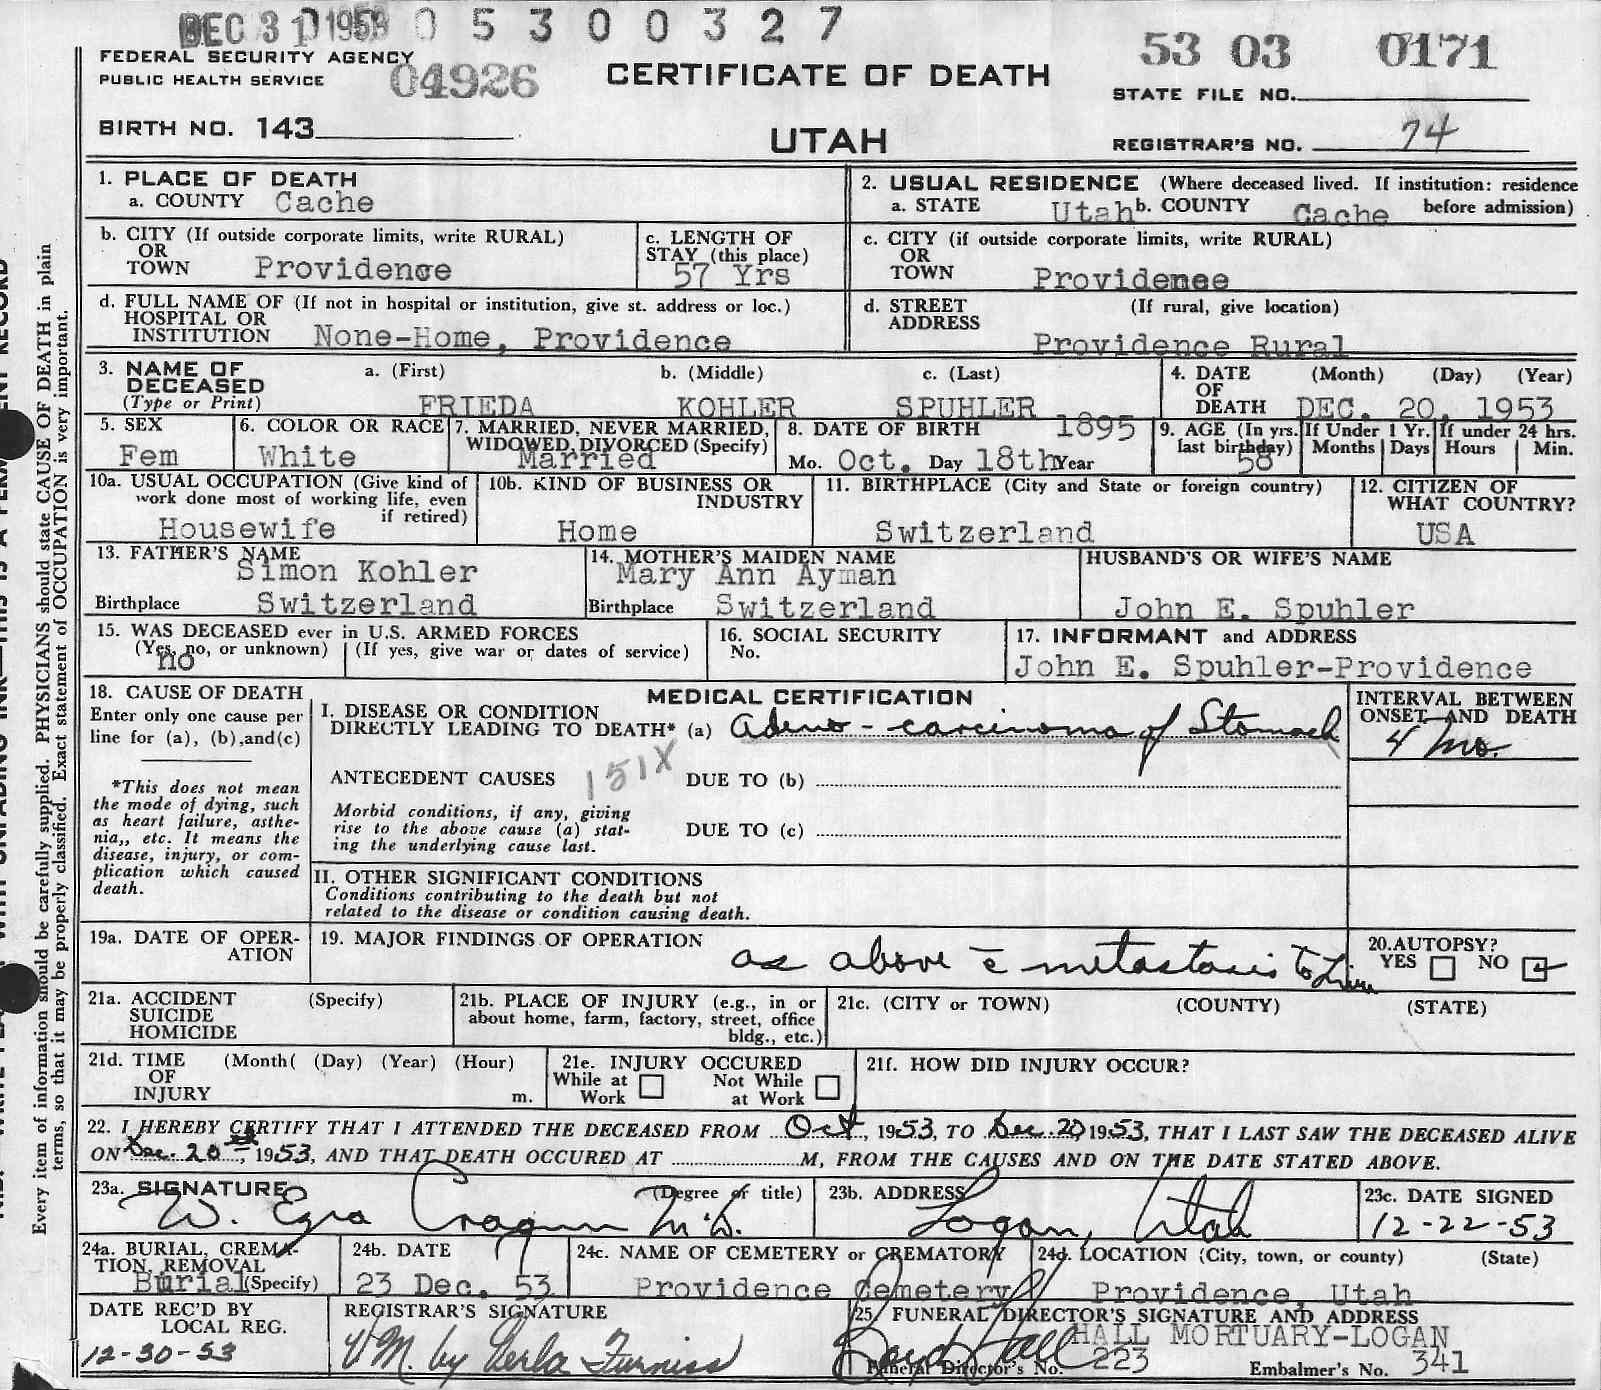 DEC 31 1953 0 5 3 0 0 3 2 7
FEDERAL SECURITY AGENCY
PUBLIC HEALTH SERVICE 04926
CERTIFICATE OF DEATH
53 03 0171
STATE FILE NO.
BIRTH NO. 143
UTAH
74
REGISTRAR'S NO.
1. PLACE OF DEATH
a. COUNTY Cache
2. USUAL RESIDENCE (Where deceased lived. If institution: residence before admission)
a. STATE Utah b. COUNTY Cache
b. CITY (If outside corporate limits, write RURAL)
OR
TOWN Providence
c. LENGTH OF
STAY (this place)
57 Yrs
c. CITY (if outside corporate limits, write RURAL)
OR
TOWN Providenee
d. FULL NAME OF (If not in hospital or institution, give st. address or loc.)
HOSPITAL OR
INSTITUTION None-Home, Providence
d. STREET (If rural, give location)
ADDRESS
Providence Rural
3. NAME OF
DECEASED
(Type or Print)
a. (First) b. (Middle) c. (Last)
FRIEDA KOHLER SPUHLER
4. DATE (Month) (Day) (Year)
OF
DEATH DEC. 20, 1953
5. SEX
Fem
6. COLOR OR RACE
White
7. MARRIED, NEVER MARRIED,
WIDOWED, DIVORCED (Specify)
Married
8. DATE OF BIRTH 1895
Mo. Oct. Day 18th Year
9. AGE (In yrs.
last birthday)
58
If Under 1 Yr.
Months Days
If under 24 hrs.
Hours Min.
10a. USUAL OCCUPATION (Give kind of
work done most of working life, even
if retired)
Housewife
10b. KIND OF BUSINESS OR
INDUSTRY
Home
11. BIRTHPLACE (City and State or foreign country)
Switzerland
12. CITIZEN OF
WHAT COUNTRY?
USA
13. FATHER'S NAME
Simon Kohler
Birthplace Switzerland
14. MOTHER'S MAIDEN NAME
Mary Ann Ayman
Birthplace Switzerland
HUSBAND'S OR WIFE'S NAME
John E. Spuhler
15. WAS DECEASED ever in U.S. ARMED FORCES
(Yes, no, or unknown) (If yes, give war or dates of service)
no
16. SOCIAL SECURITY
No.
17. INFORMANT and ADDRESS
John E. Spuhler-Providence
18. CAUSE OF DEATH
Enter only one cause per
line for (a), (b), and (c)
*This does not mean
the mode of dying, such
as heart failure, asthe-
nia,, etc. It means the
disease, injury, or com-
plication which caused
death.
MEDICAL CERTIFICATION
I. DISEASE OR CONDITION
DIRECTLY LEADING TO DEATH* (a) Adeno-carcinoma of Stomach
ANTECEDENT CAUSES 151X DUE TO (b)
Morbid conditions, if any, giving
rise to the above cause (a) stat-
ing the underlying cause last.
DUE TO (c)
II. OTHER SIGNIFICANT CONDITIONS
Conditions contributing to the death but not
related to the disease or condition causing death.
INTERVAL BETWEEN
ONSET AND DEATH
4 mo.
19a. DATE OF OPER-
ATION
19. MAJOR FINDINGS OF OPERATION
as above c̄ metastasis to Liver
20. AUTOPSY?
YES NO
21a. ACCIDENT (Specify)
SUICIDE
HOMICIDE
21b. PLACE OF INJURY (e.g., in or
about home, farm, factory, street, office
bldg., etc.)
21c. (CITY or TOWN) (COUNTY) (STATE)
21d. TIME (Month( (Day) (Year) (Hour)
OF
INJURY m.
21e. INJURY OCCURED
While at Work
Not While at Work
21f. HOW DID INJURY OCCUR?
22. I HEREBY CERTIFY THAT I ATTENDED THE DECEASED FROM Oct, 1953, TO Dec. 20, 1953, THAT I LAST SAW THE DECEASED ALIVE
ON Dec. 20, 1953, AND THAT DEATH OCCURED AT M, FROM THE CAUSES AND ON THE DATE STATED ABOVE.
23a. SIGNATURE (Degree or title)
W. Ezra Cragun M.D.
23b. ADDRESS
Logan, Utah
23c. DATE SIGNED
12-22-53
24a. BURIAL, CREMA-
TION, REMOVAL
Burial (Specify)
24b. DATE
23 Dec. 53
24c. NAME OF CEMETERY or CREMATORY
Providence Cemetery
24d. LOCATION (City, town, or county) (State)
Providence, Utah
DATE REC'D BY
LOCAL REG.
12-30-53
REGISTRAR'S SIGNATURE
VM. by Verla Furniss
25. FUNERAL DIRECTOR'S SIGNATURE AND ADDRESS
HALL MORTUARY-LOGAN
Boyd Hall
Funeral Director's No. 223 Embalmer's No. 341
Every item of information should be carefully supplied. PHYSICIANS should state CAUSE OF DEATH in plain
terms, so that it may be properly classified. Exact statement of OCCUPATION is very important.